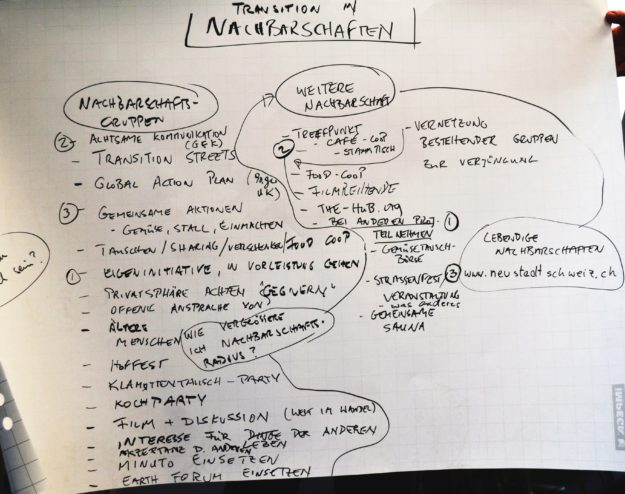 TRANSITION IN
NACHBARSCHAFTEN
NACHBARSCHAFTS-
GRUPPEN
② ACHTSAME KOMMUNIKATION
(GFK)
- TRANSITION STREETS
- GLOBAL ACTION PLAN
UK)
③ GEMEINSAME AKTIONEN
- GEMÜSE, STALL, EINMACHEN
- TAUSCHEN/SHARING/VERSCHENKE/FOOD COOP
① - EIGENINITIATIVE, IN VORLEISTUNG GEHEN
- PRIVATSPHÄRE ACHTEN "GEGNERN"
- OFFENE ANSPRACHE VON
- ÄLTERE
MENSCHEN
- HOFFEST
- KLAMOTTENTAUSCH-PARTY
- KOCHPARTY
- FILM + DISKUSSION (WELT IM WANDEL)
- INTERESSE FÜR DINGE DER ANDEREN
- AKZEPTANZ D. ANDEREN LEBEN
- MINUTO EINSETZEN
- EARTH FORUM EINSETZEN
WIE VERGRÖSSERE
ICH NACHBARSCHAFTS-
RADIUS?
WEITERE
NACHBARSCHAFT
- TREFFPUNKT
② - CAFÉ-COOP
- STAMMTISCH
- FOOD-COOP
- FILMREIHENDE
- THE-HUB.org
- BEI ANDEREN PROJ. ①
TEILNEHMEN
- GEMÜSETAUSCH-
BÖRSE
- STRASSENFEST/ ③
VERANSTALTUNG
- was anderes
- GEMEINSAME
SAUNA
- VERNETZUNG
BESTEHENDER GRUPPEN
ZUR VERJÜNGUNG
LEBENDIGE
NACHBARSCHAFTEN
www.neustadtschweiz.ch
sein?